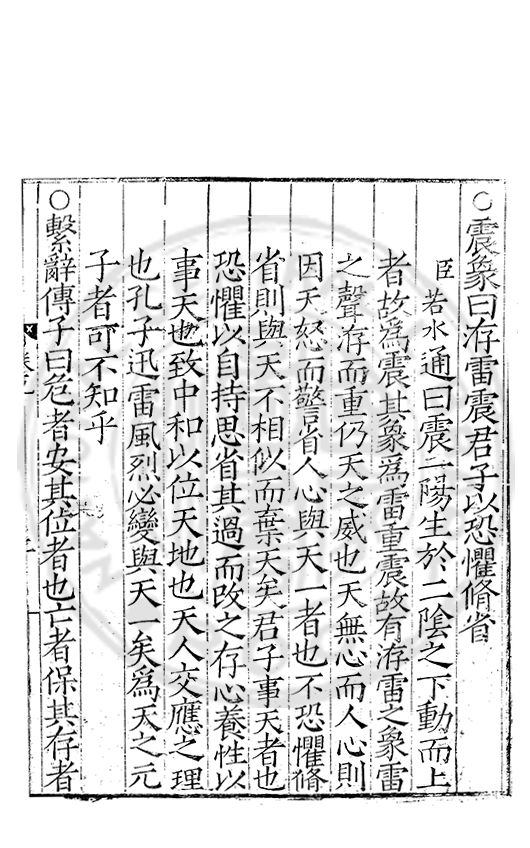 ○震象曰洊雷震君子以恐懼脩省
臣若水通曰震一陽生於二陰之下動而上
者故為震其象為雷重震故有洊雷之象雷
之聲洊而重仍天之威也天無心而人心則
因天怒而警省人心與天一者也不恐懼脩
省則與天不相似而棄天矣君子事天者也
恐懼以自持思省其過而改之存心養性以
事天也致中和以位天地也天人交應之理
也孔子迅雷風烈必變與天一矣為天之元
子者可不知乎
○繫辭傳子曰危者安其位者也亡者保其存者